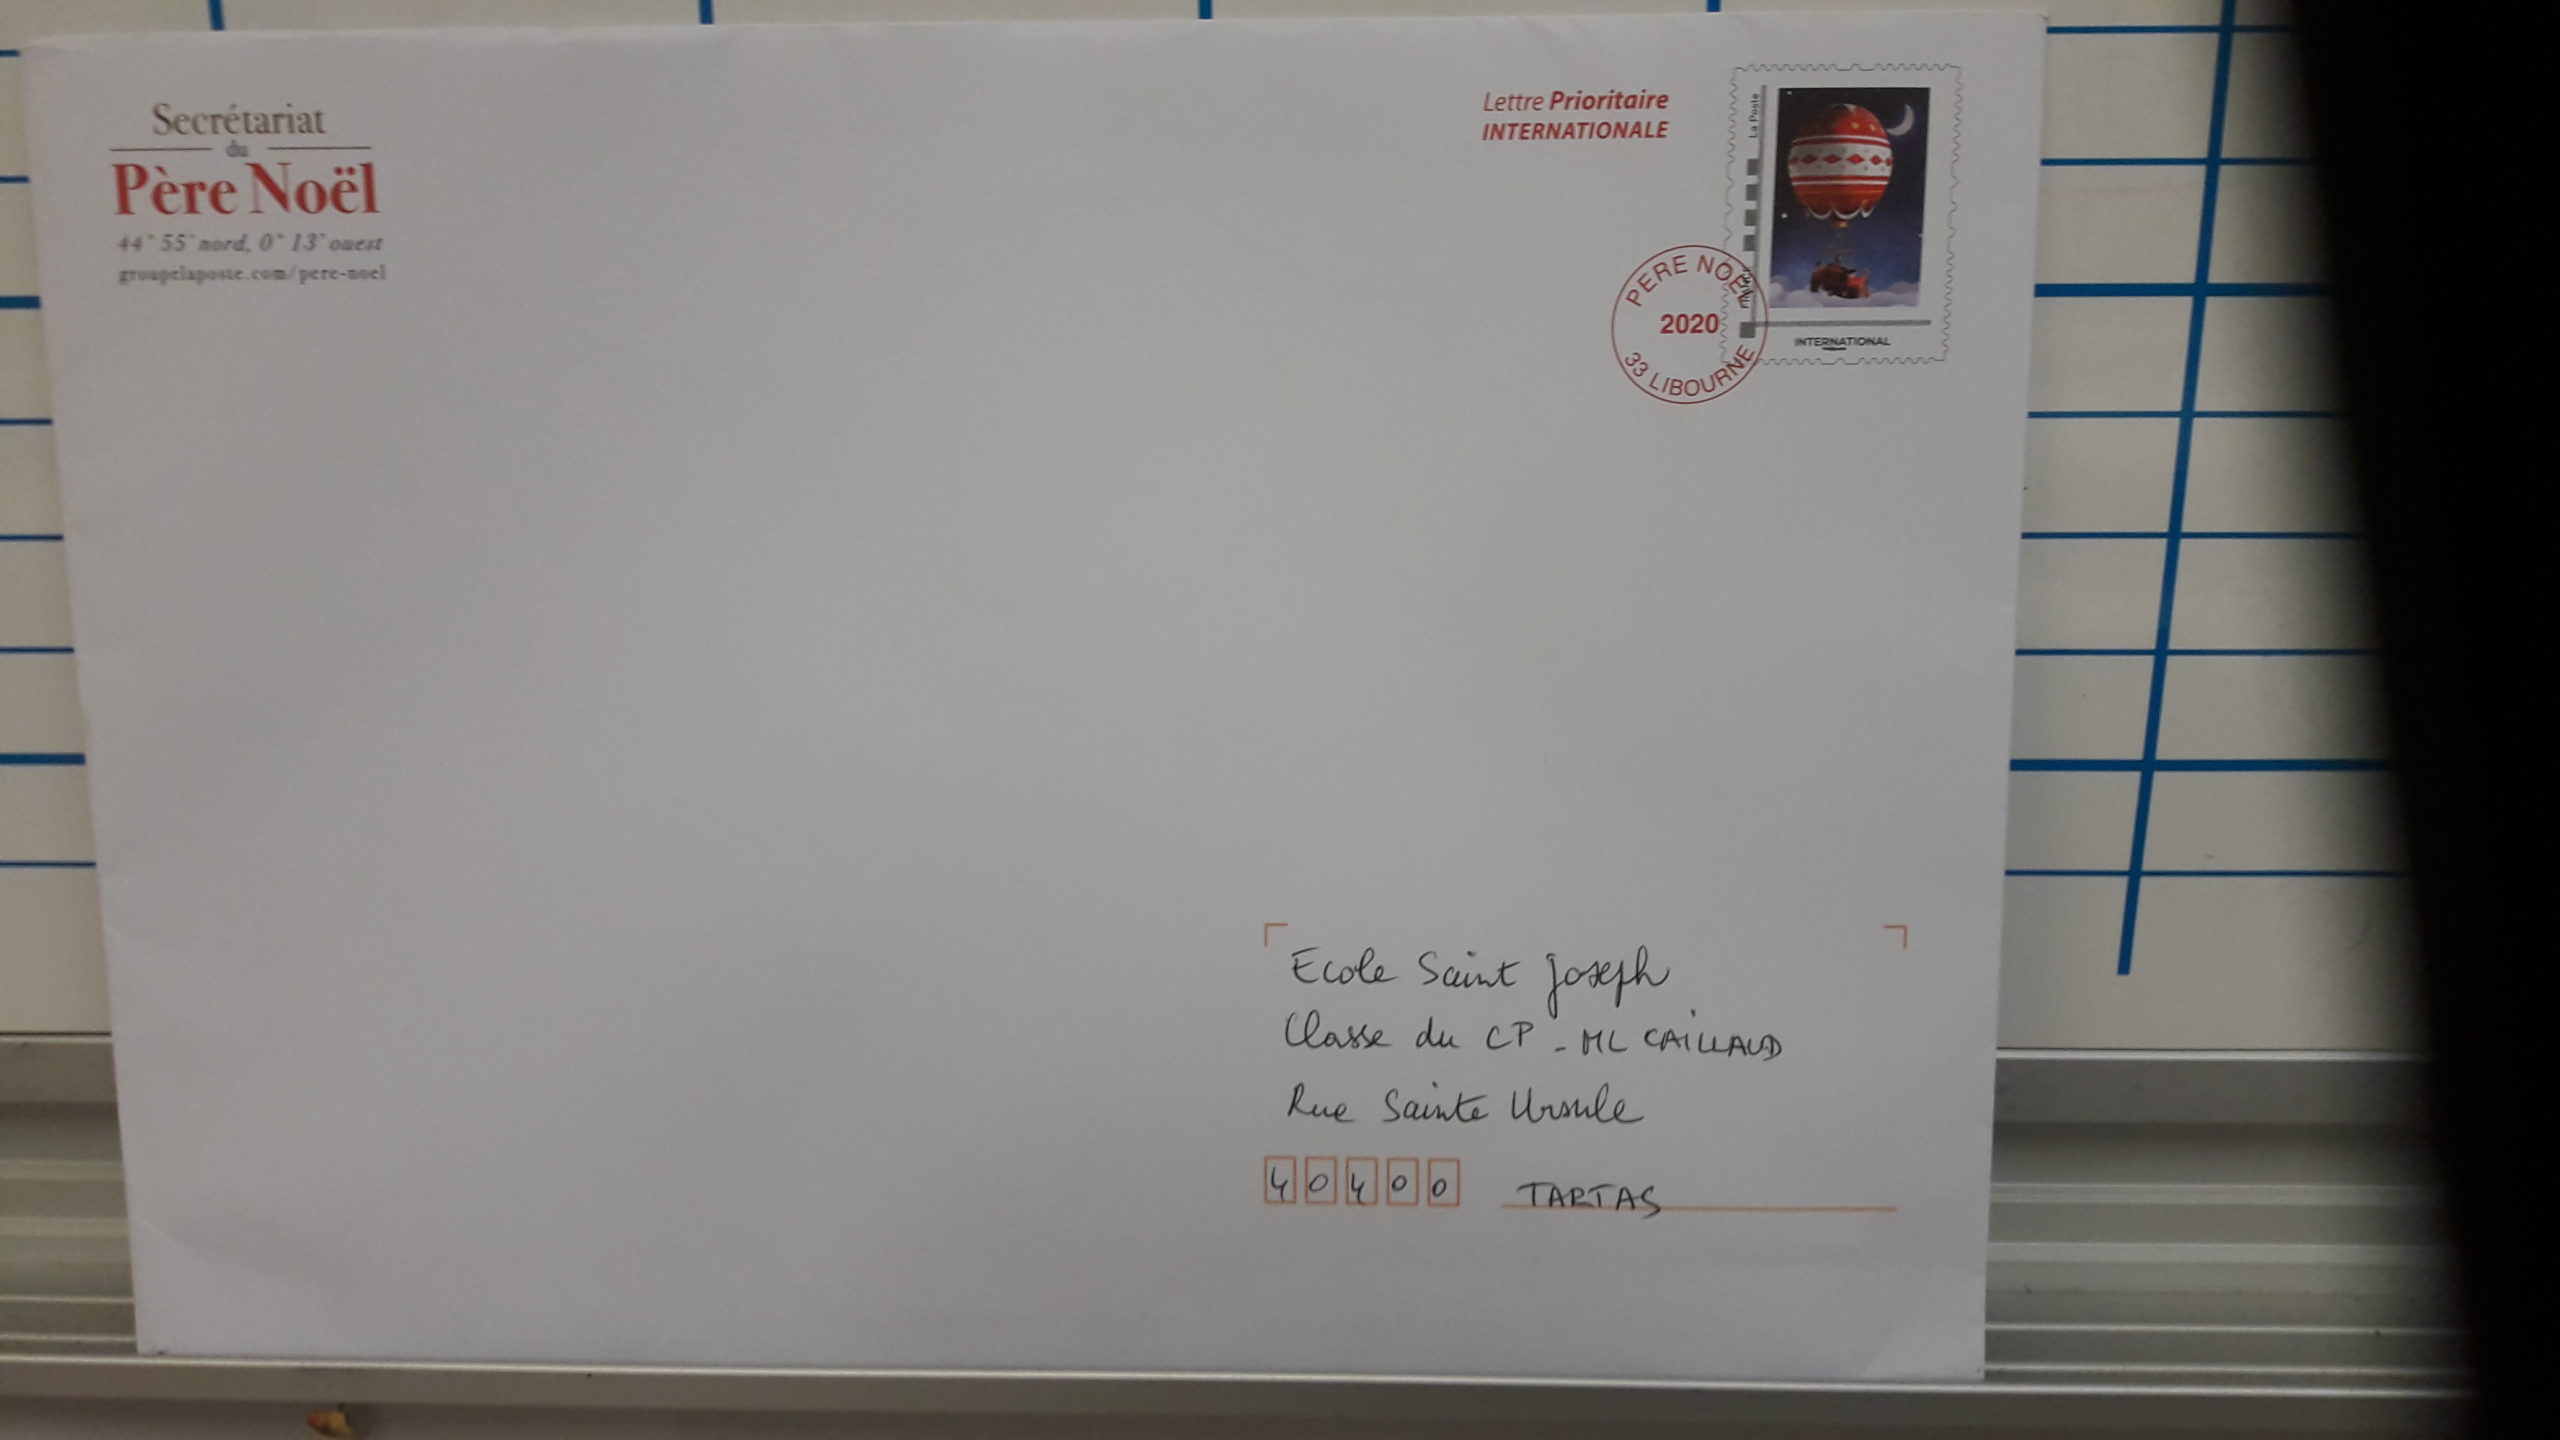 Secrétariat
du
Père Noël
44° 55' nord, 0° 13' ouest
groupelaposte.com/pere-noel
Lettre Prioritaire
INTERNATIONALE
La Poste
PERE NOËL
2020
33 LIBOURNE
INTERNATIONAL
Ecole Saint Joseph
Classe du CP - ML CAILLAUD
Rue Sainte Ursule
40400 TARTAS